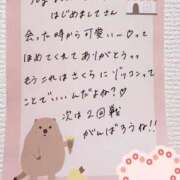 はじめましてさん
会った時から可愛いー♡って
ほめてくれてありがとう。。
もうこれはさくらにゾッコンって
ことでいいんだよね?♡
次は2回戦
がんばろうね!!